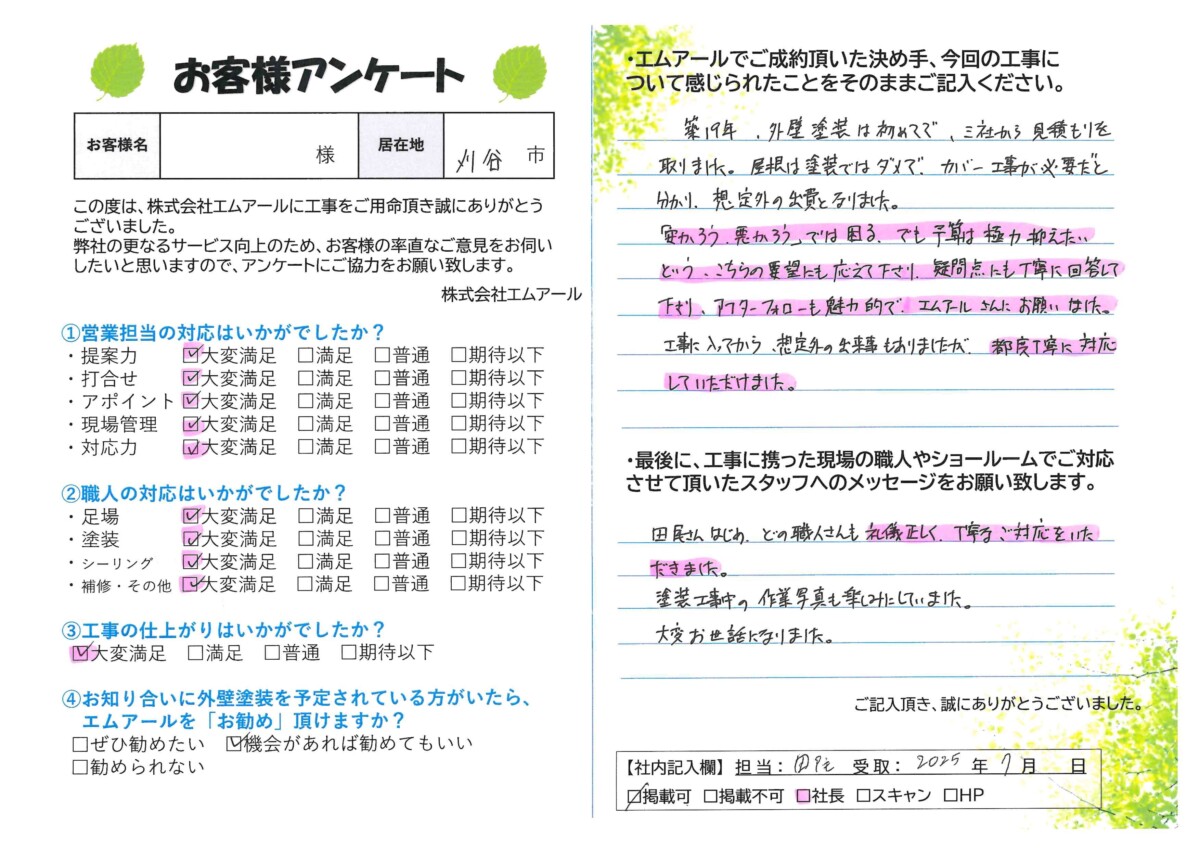 お客様アンケート
お客様名 様 居在地 刈谷 市
この度は、株式会社エムアールに工事をご用命頂き誠にありがとう
ございました。
弊社の更なるサービス向上のため、お客様の率直なご意見をお伺い
したいと思いますので、アンケートにご協力をお願い致します。
株式会社エムアール
①営業担当の対応はいかがでしたか？
・提案力 ☑大変満足 □満足 □普通 □期待以下
・打合せ ☑大変満足 □満足 □普通 □期待以下
・アポイント ☑大変満足 □満足 □普通 □期待以下
・現場管理 ☑大変満足 □満足 □普通 □期待以下
・対応力 ☑大変満足 □満足 □普通 □期待以下
②職人の対応はいかがでしたか？
・足場 ☑大変満足 □満足 □普通 □期待以下
・塗装 ☑大変満足 □満足 □普通 □期待以下
・シーリング ☑大変満足 □満足 □普通 □期待以下
・補修・その他 ☑大変満足 □満足 □普通 □期待以下
③工事の仕上がりはいかがでしたか？
☑大変満足 □満足 □普通 □期待以下
④お知り合いに外壁塗装を予定されている方がいたら、
エムアールを「お勧め」頂けますか？
□ぜひ勧めたい ☑機会があれば勧めてもいい
□勧められない
・エムアールでご成約頂いた決め手、今回の工事に
ついて感じられたことをそのままご記入ください。
築19年、外壁塗装は初めてで、三社から見積もりを
取りました。屋根は塗装ではダメで、カバー工事が必要だと
分かり、想定外の出費となりました。
「安かろう、悪かろう」では困る、でも予算は極力抑えたい
という、こちらの要望にも応えて下さり、疑問点にも丁寧に回答して
下さり、アフターフォローも魅力的で、エムアールさんにお願いしました。
工事に入ってから、想定外の出来事もありましたが、都度丁寧に対応
していただけました。
・最後に、工事に携った現場の職人やショールームでご対応
させて頂いたスタッフへのメッセージをお願い致します。
田尾さんはじめ、どの職人さんも礼儀正しく、丁寧なご対応をいた
だきました。
塗装工事中の作業写真も楽しみにしていました。
大変お世話になりました。
ご記入頂き、誠にありがとうございました。
【社内記入欄】 担当： 受取： 2025 年 7 月 日
☑掲載可 □掲載不可 □社長 □スキャン □HP